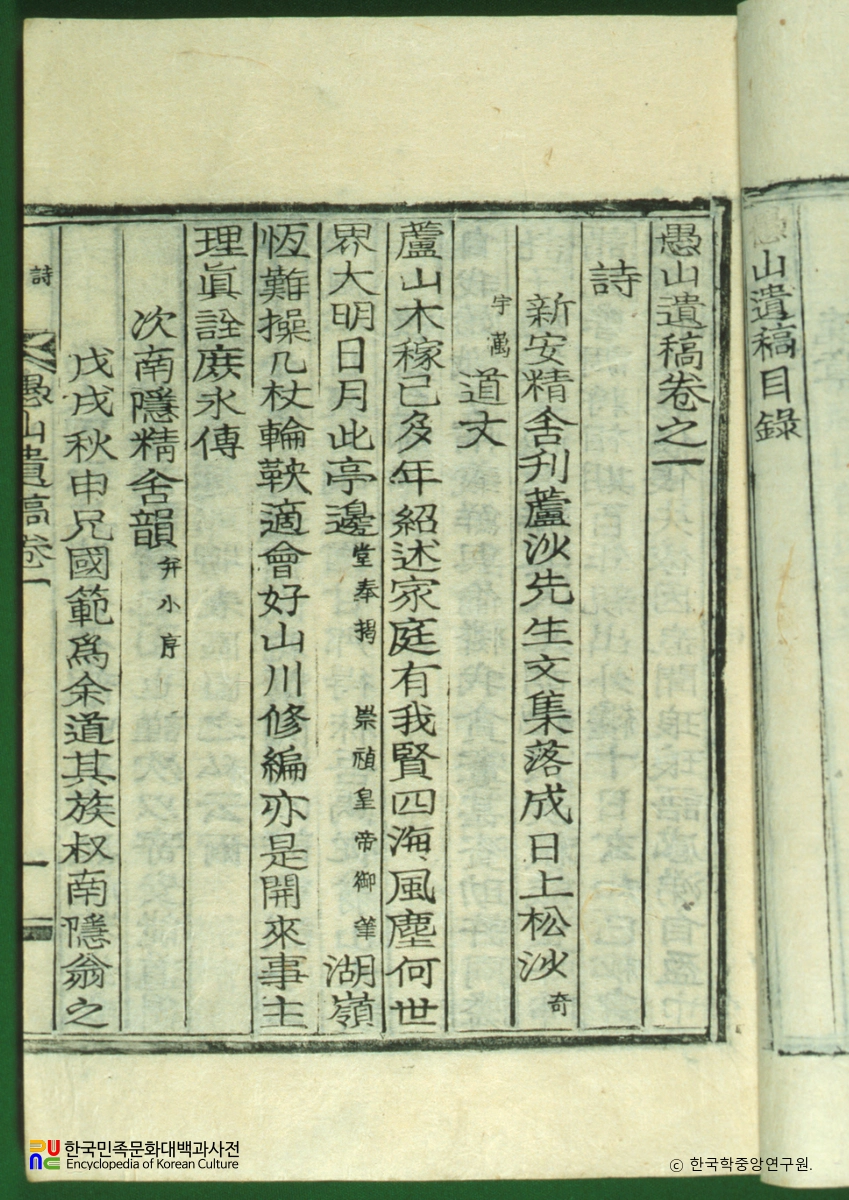 愚山遺稿目錄
愚山遺稿卷之一
詩
新安精舍刋蘆沙先生文集落成日上松沙奇
宇萬道丈
蘆山木稼已多年紹述家庭有我賢四海風塵何世
界大明日月此亭邊堂奉揭崇禎皇帝御筆湖嶺
恆難操几杖輪鞅適會好山川修編亦是開來事主
理眞詮庶永傳
次南隱精舍韻弁小序
戊戌秋申兄國範爲余道其族叔南隱翁之
詩
愚山遺稿卷一
一
한국민족문화대백과사전
Encyclopedia of Korean Culture
ⓒ 한국학중앙연구원.